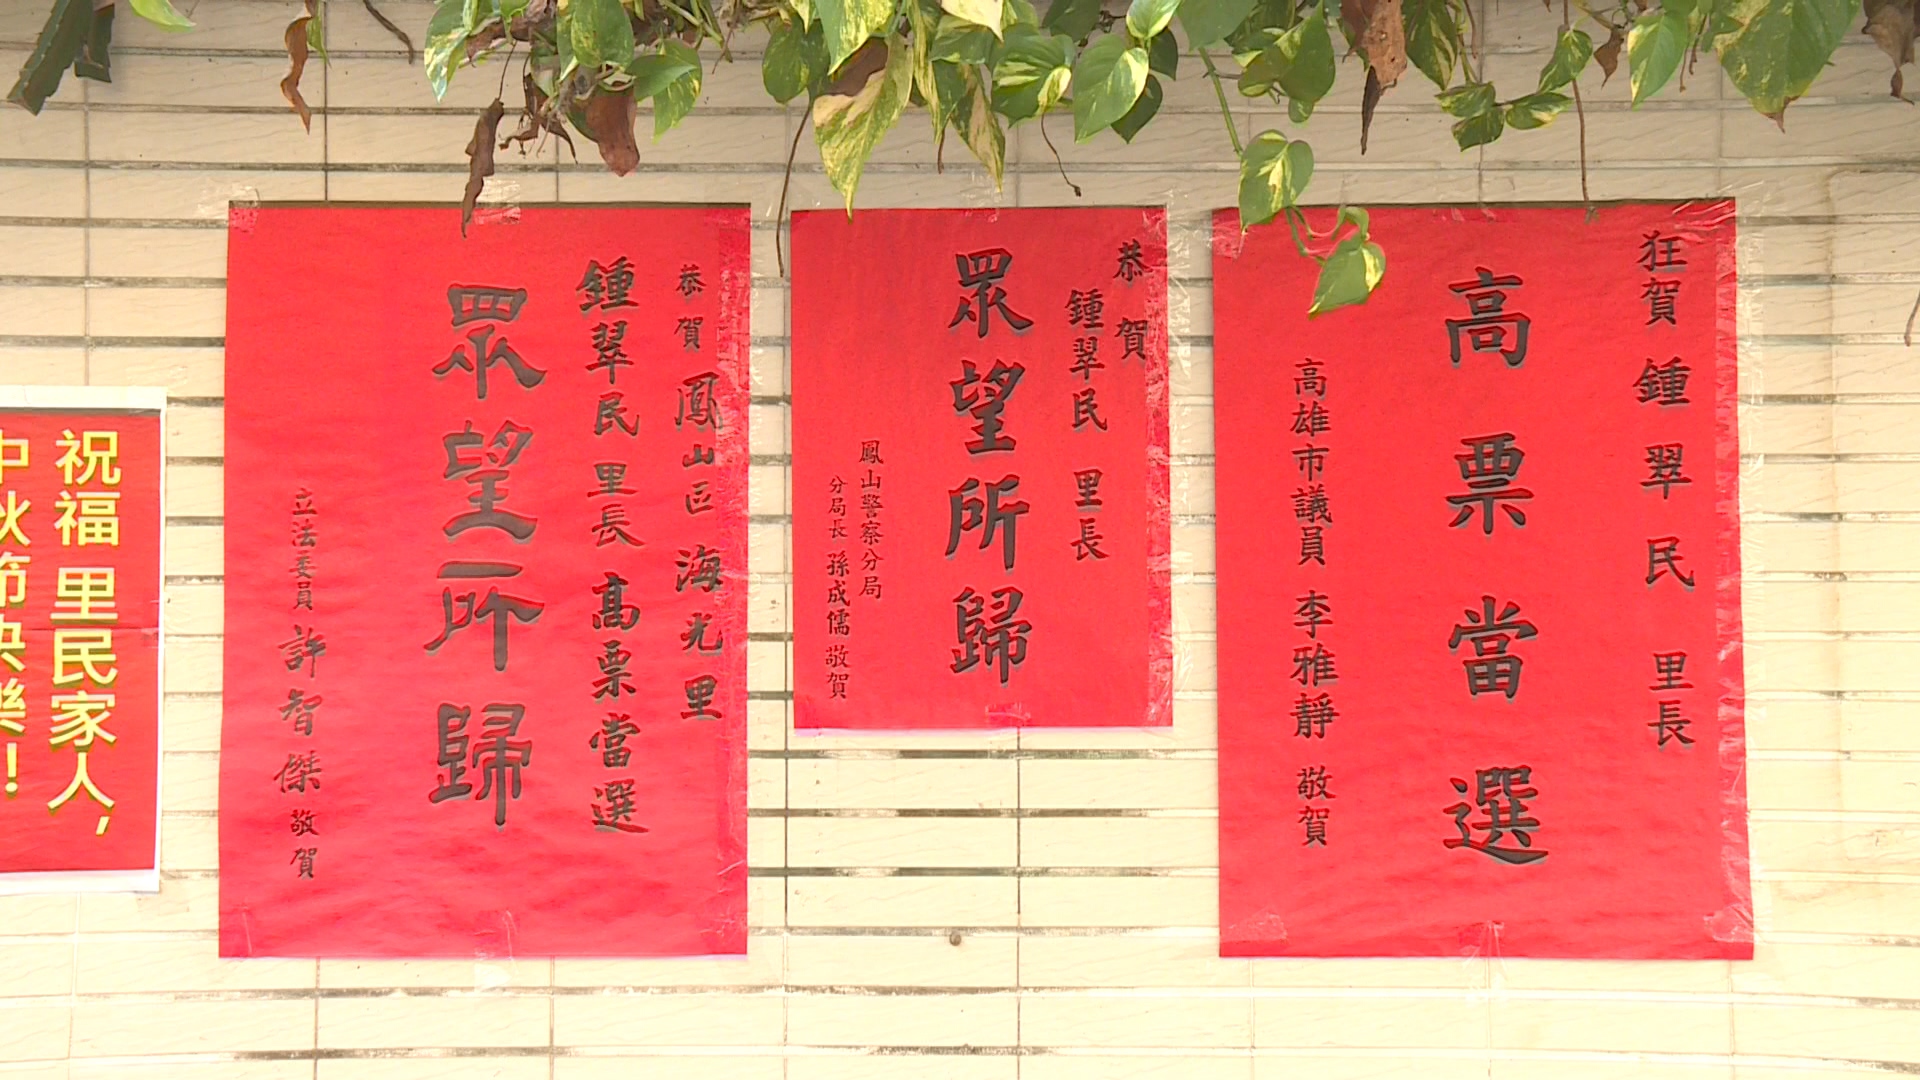 狂賀 鍾翠民 里長
高票當選
高雄市議員 李雅靜 敬賀
恭賀
鍾翠民 里長
眾望所歸
鳳山警察分局
分局長 孫成儒 敬賀
恭賀 鳳山區 海光里
鍾翠民 里長 高票當選
眾望所歸
立法委員 許智傑 敬賀
祝福 里民家人,
中秋節快樂!